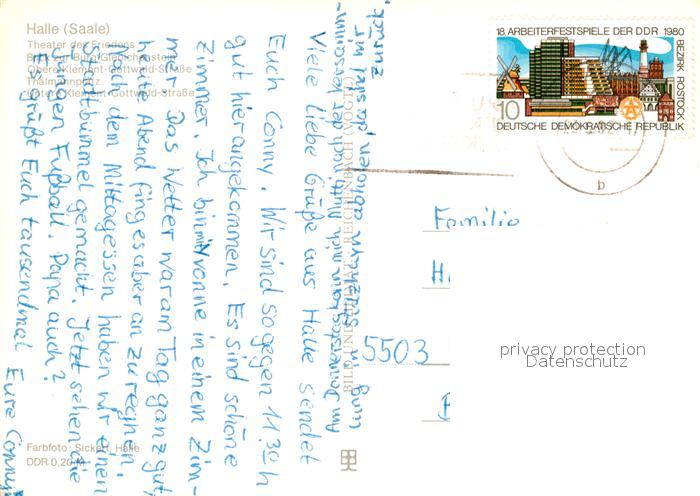 Halle (Saale)
Theater des Friedens
Blick zur Burg Giebichenstein
Obere Klement-Gottwald-Straße
Thälmannplatz
Untere Klement-Gottwald-Straße
18. ARBEITERFESTSPIELE DER DDR 1980
BEZIRK ROSTOCK
10
DEUTSCHE DEMOKRATISCHE REPUBLIK
b
Viele liebe Grüße aus Halle sendet
Euch Conny. Wir sind so gegen 11.30 h
gut hierangekommen. Es sind schöne
Zimmer. Ich bin mit Yvonne in einem Zim-
mer. Das Wetter war am Tag ganz gut,
heute Abend fing es aber an zu regnen.
Nach dem Mittagessen haben wir einen
Stadtbummel gemacht. Jetzt sehen die
Jungen Fußball. Papa auch?
Es grüßt Euch tausendmal Eure Conny
Am Donnerstag kann mich Mutti nach der Versamm-
lung in abholen, da sind wir
zurück.
BILD UND HEIMAT REICHENBACH (VOGTL)
Familie
H
5503
privacy protection
Datenschutz
Farbfoto: Sickert, Halle
DDR 0,20 M